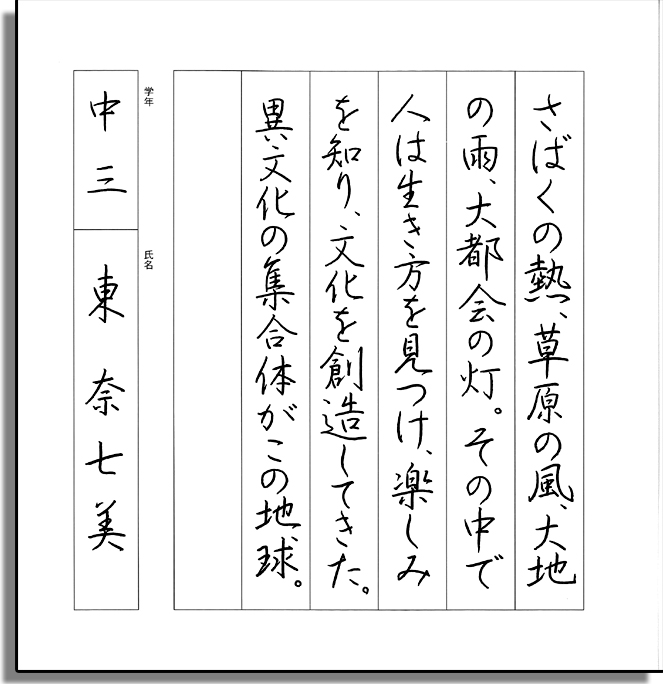 さばくの熱、草原の風、大地
の雨、大都会の灯。その中で
人は生き方を見つけ、楽しみ
を知り、文化を創造してきた。
異文化の集合体がこの地球。
学年
中三
氏名
東奈七美